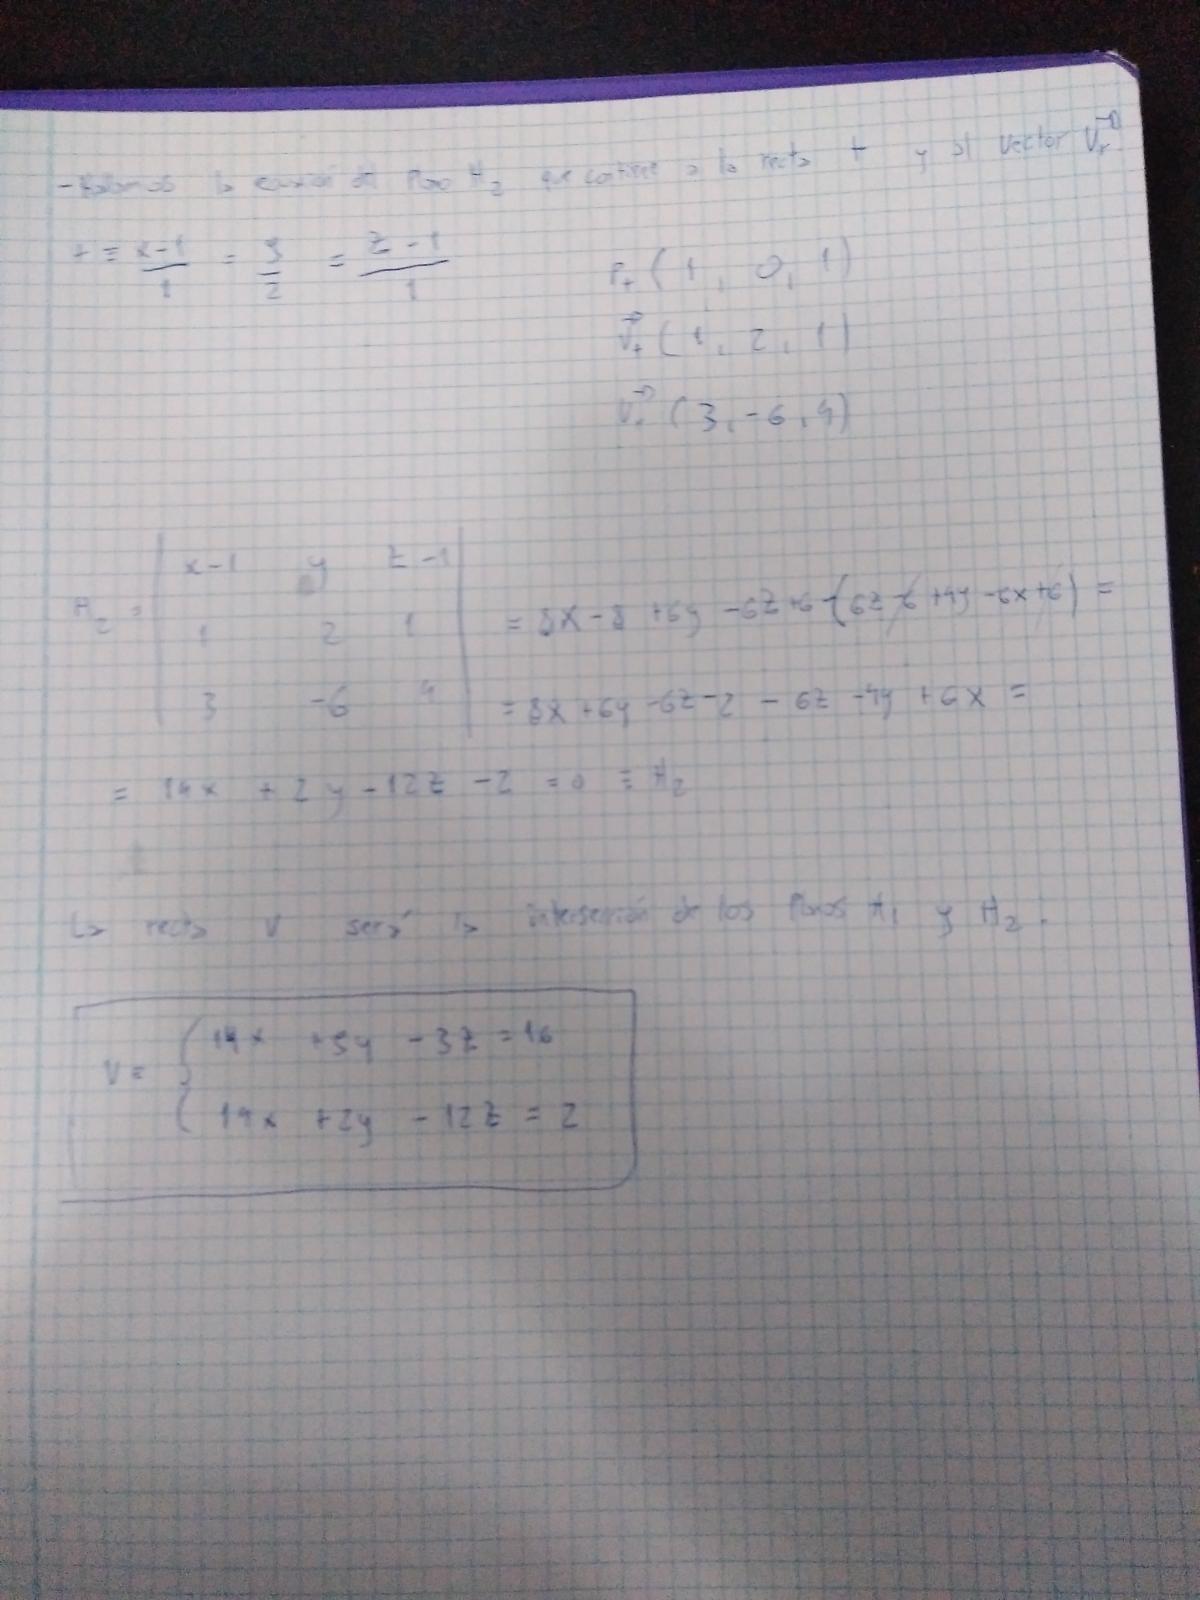 - Hallamos la ecuación del Plano π2 que contiene a la recta t y al vector Vr
t ≡ x-1/1 = y/2 = z-1/1
Pt (1, 0, 1)
Vt (1, 2, 1)
Vr (3, -6, 4)
π2 = | x-1 y z-1 |
| 1 2 1 |
| 3 -6 4 |
= 8x - 8 + 3y - 6z + 6 - (6z - 6 + 4y - 6x + 6) =
= 8x + 3y - 6z - 2 - 6z - 4y + 6x =
= 14x + 2y - 12z - 2 = 0 ≡ π2
La recta v será la intersección de los Planos π1 y π2.
v ≡ { 14x + 5y - 3z = 16
14x + 2y - 12z = 2